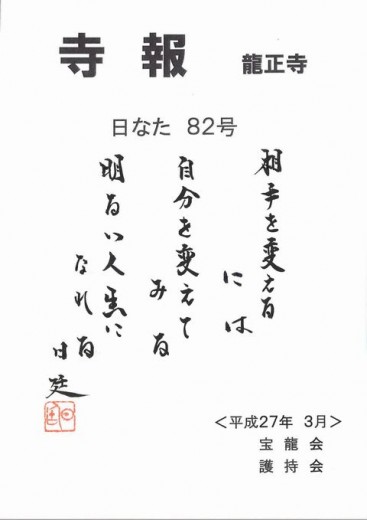 寺報 龍正寺
日なた 82号
相手を変える
には
自分を変えて
みる
明るい人生に
なれる
日廷
＜平成27年 3月＞
宝龍会
護持会